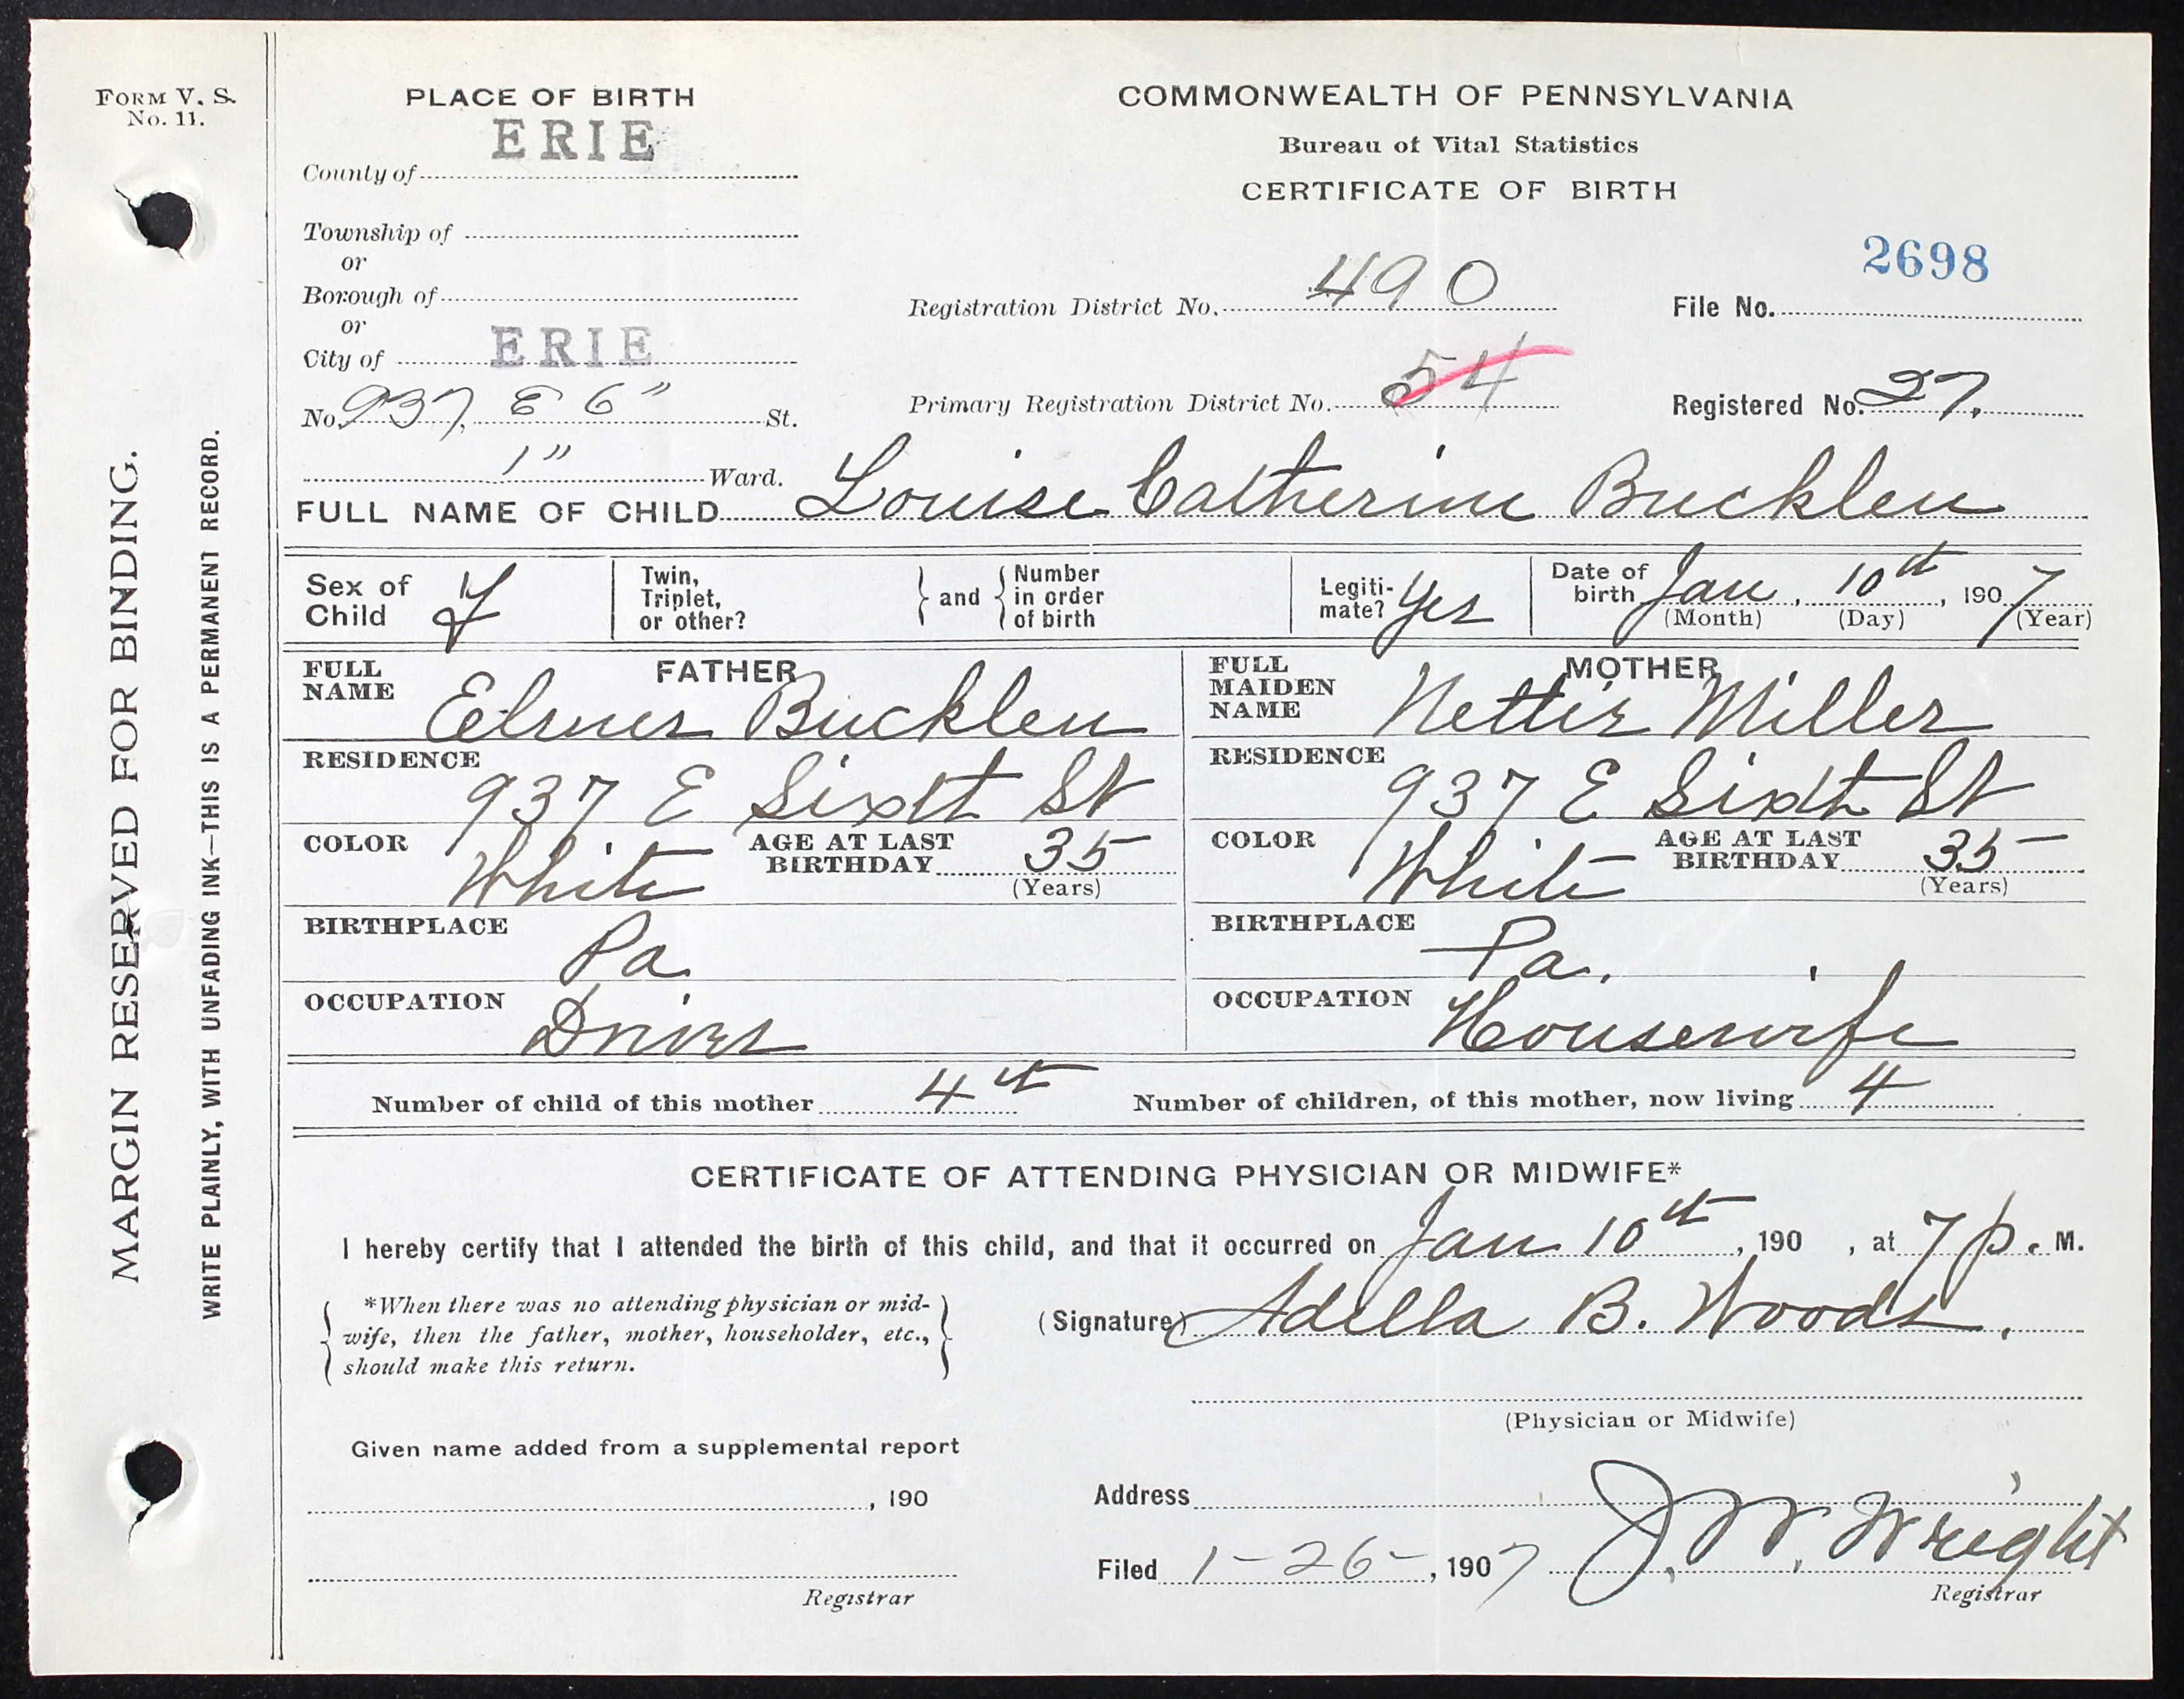 FORM V. S.
No. 11.
MARGIN RESERVED FOR BINDING.
WRITE PLAINLY, WITH UNFADING INK—THIS IS A PERMANENT RECORD.
PLACE OF BIRTH
County of ERIE
Township of
or
Borough of
or
City of ERIE
No. 937, E 6" St.
1" Ward.
COMMONWEALTH OF PENNSYLVANIA
Bureau of Vital Statistics
CERTIFICATE OF BIRTH
2698
Registration District No. 490 File No.
Primary Registration District No. 54 Registered No. 27.
FULL NAME OF CHILD Louise Catherine Bucklen
Sex of Child F
Twin, Triplet, or other? } and { Number in order of birth
Legiti-mate? Yes
Date of birth Jan, 10th, 1907
(Month) (Day) (Year)
FATHER
FULL NAME Elmer Bucklen
RESIDENCE
937 E Sixth St
COLOR White AGE AT LAST BIRTHDAY 35
(Years)
BIRTHPLACE
Pa
OCCUPATION
Driver
MOTHER
FULL MAIDEN NAME Nettie Miller
RESIDENCE
937 E Sixth St
COLOR White AGE AT LAST BIRTHDAY 35
(Years)
BIRTHPLACE
Pa.
OCCUPATION
Housewife
Number of child of this mother 4th Number of children, of this mother, now living 4
CERTIFICATE OF ATTENDING PHYSICIAN OR MIDWIFE*
I hereby certify that I attended the birth of this child, and that it occurred on Jan 10th, 190 , at 7 p. M.
*When there was no attending physician or mid-
wife, then the father, mother, householder, etc.,
should make this return.
(Signature) Adella B. Woods.
(Physician or Midwife)
Given name added from a supplemental report
, 190
Registrar
Address
Filed 1-26-, 1907 J. W. Wright
Registrar